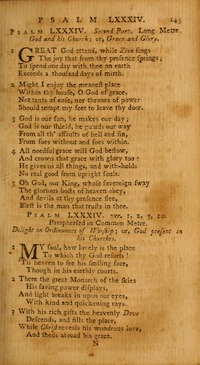 PSALM LXXXIV. 143
PSALM LXXXIV. Second Part. Long Metre.
God and his Church; or, Grace and Glory.
1 GREAT God attend, while Zion sings
The joy that from thy presence springs;
To spend one day with thee on earth
Exceeds a thousand days of mirth.
2 Might I enjoy the meanest place
Within thy house, O God of grace,
Not tents of ease, nor thrones of power
Should tempt my feet to leave thy door.
3 God is our sun, he makes our day;
God is our shield, he guards our way
From all th' assaults of hell and sin,
From foes without and foes within.
4 All needful grace will God bestow,
And crown that grace with glory too:
He gives us all things, and with-holds
No real good from upright souls.
5 Oh God, our King, whose sovereign sway
The glorious hosts of heaven obey,
And devils at thy presence flee,
Blest is the man that trusts in thee.
PSALM LXXXIV. ver. 1, 2, 9, 10.
Paraphrased in Common Metre.
Delight in Ordinances of Worship; or, God present in
his Churches.
1 MY soul, how lovely is the place
To which thy God resorts!
'Tis heaven to see his smiling face,
Though in his earthly courts.
2 There the great Monarch of the skies
His saving power displays,
And light breaks in upon our eyes,
With kind and quickening rays.
3 With his rich gifts the heavenly Dove
Descends, and fills the place,
While Christ reveals his wondrous love,
And sheds abroad his grace.
N